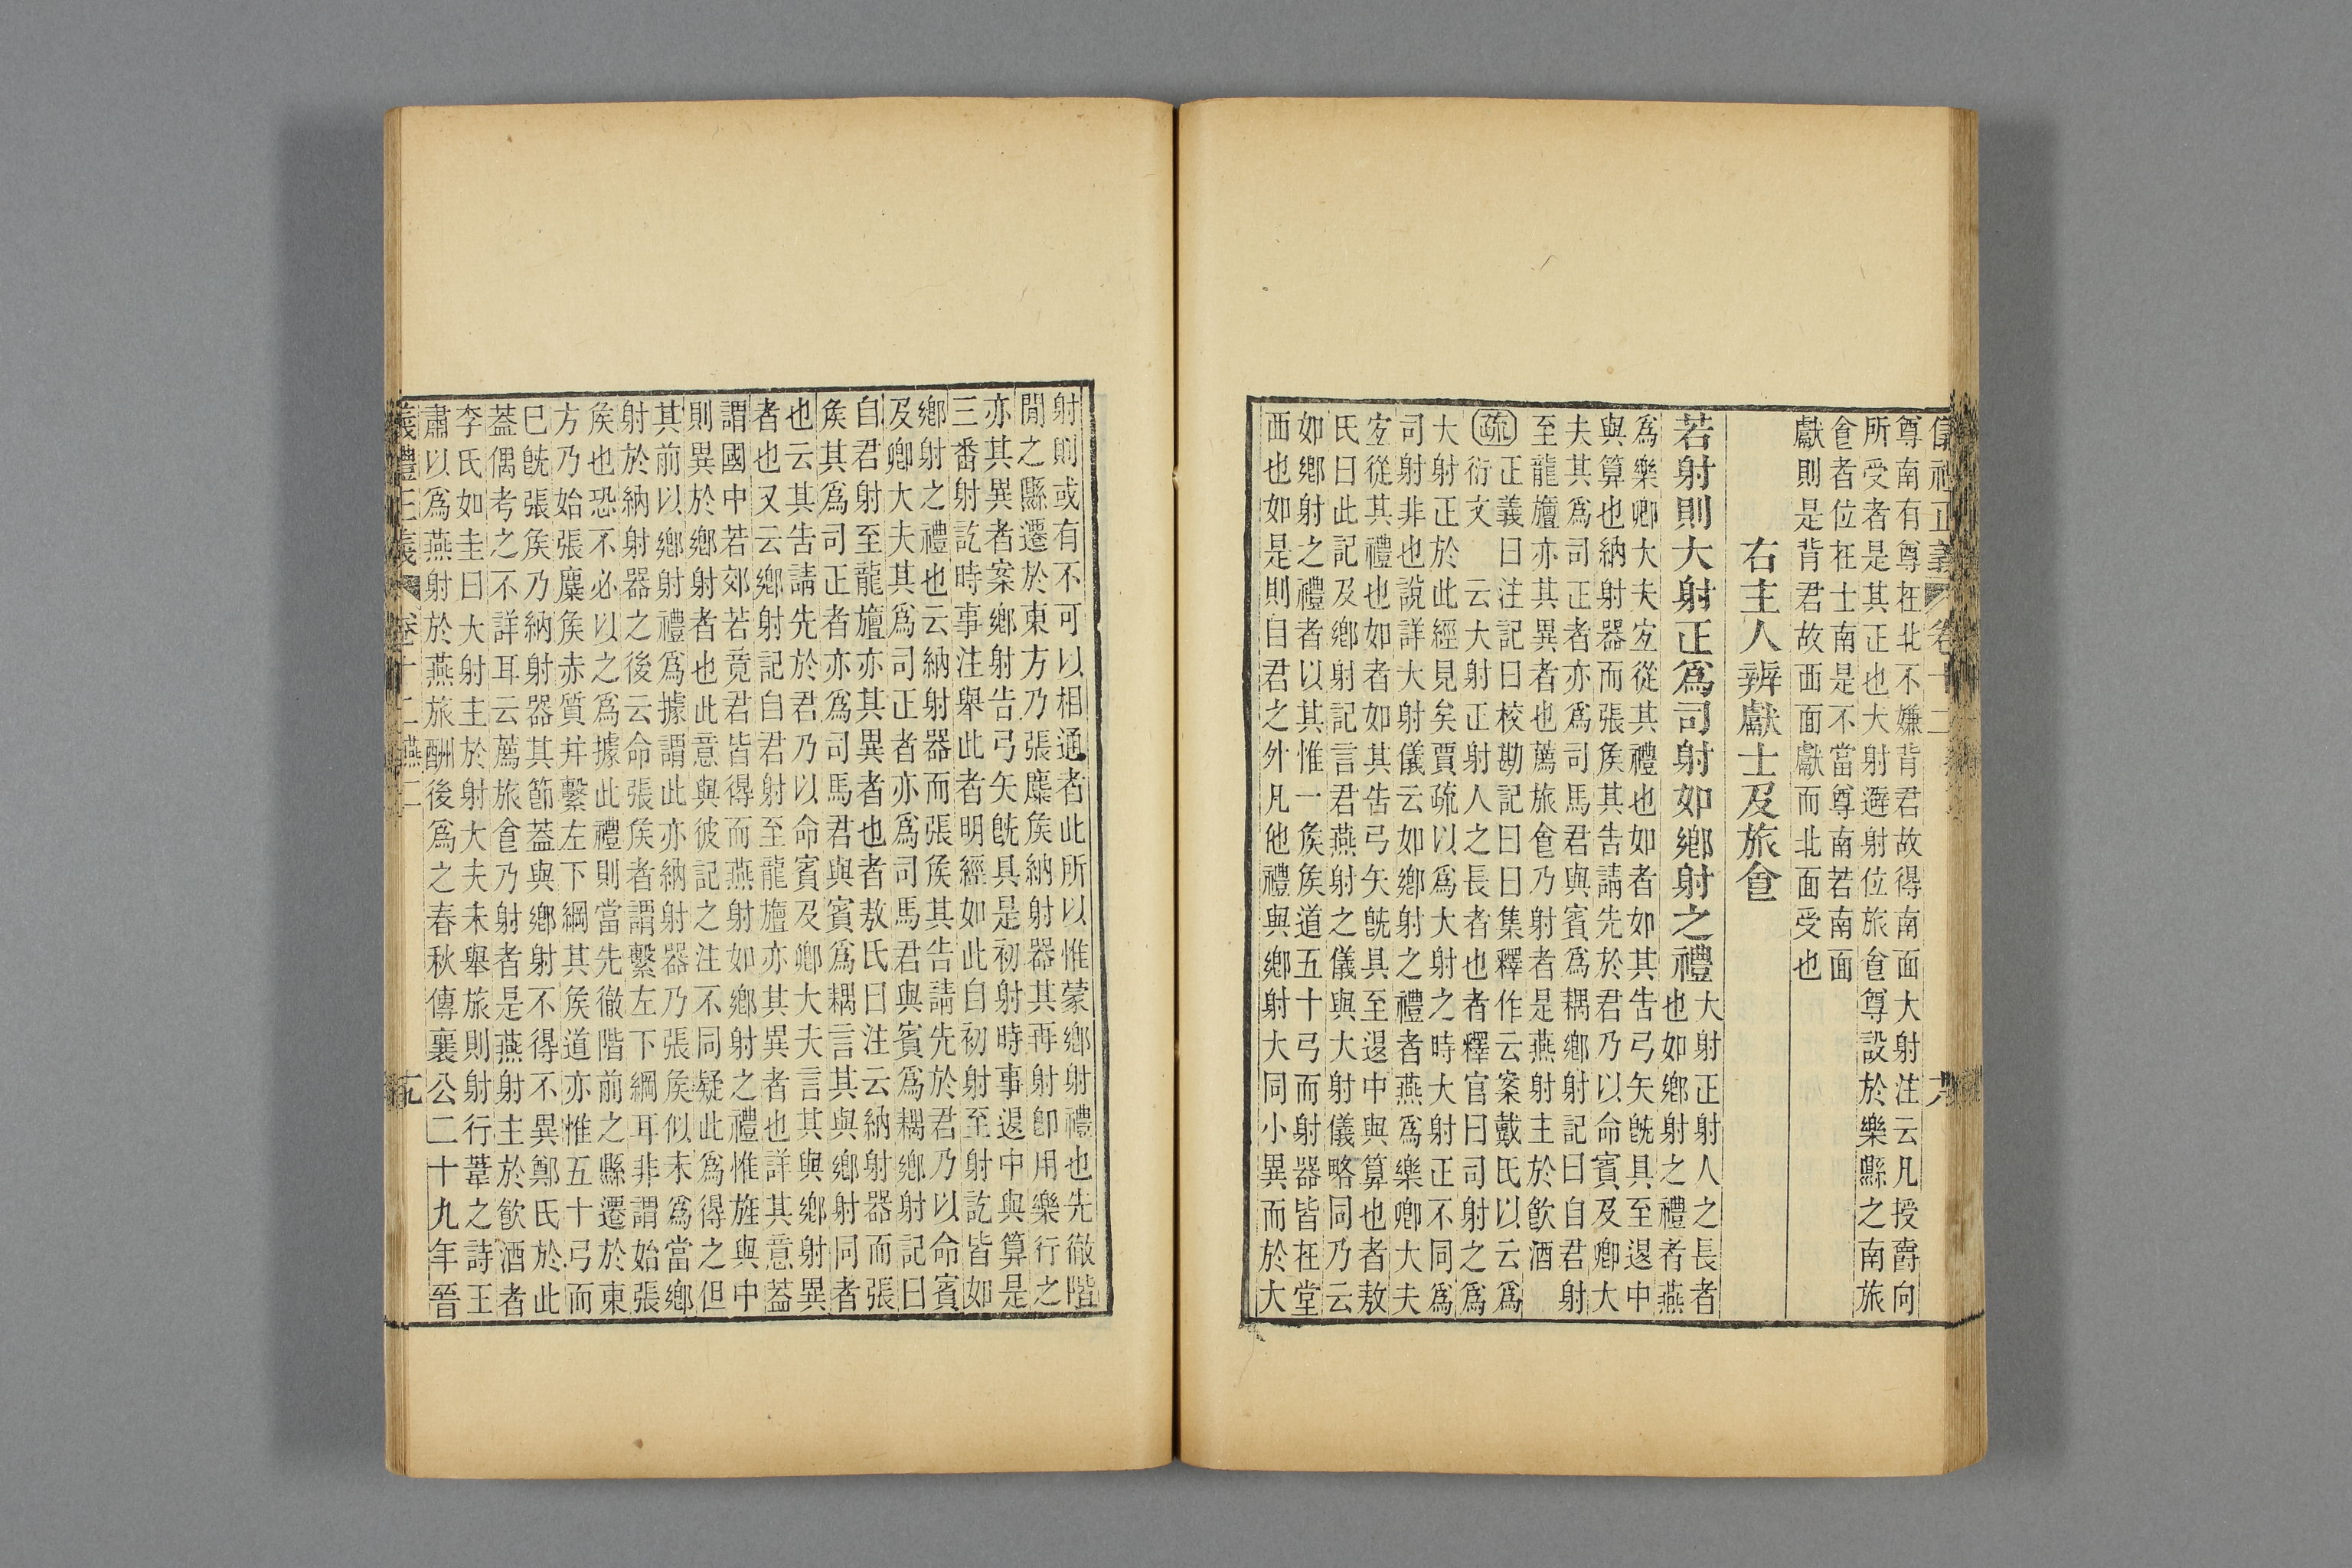 儀禮正義 卷十二
尊南有尊在北不嫌背君故得南面大射注云凡授爵向
所受者是其正也大射遷射位旅食尊設於樂縣之南旅
食者位在士南是不當尊南若南面
獻則是背君故西面獻而北面受也
右主人辨獻士及旅食
若射則大射正爲司射如鄉射之禮
大射正射人之長者
也如鄉射之禮者燕
爲樂卿大夫宜從其禮也如者如其告弓矢旣具至退中
與算也納射器而張侯其告請先於君乃以命賓及卿大
夫其爲司正者亦爲司馬君與賓爲耦鄉射記曰自君射
至龍旜亦其異者也薦旅食乃射者是燕射主於飮酒
疏正義曰注記曰校勘記曰曰集釋作云案戴氏以云爲
衍文 云大射正射人之長者也者釋官曰司射之爲
大射正於此經見矣賈疏以爲大射之時大射正不同爲
司射非也說詳大射儀云如鄉射之禮者燕爲樂卿大夫
宜從其禮也如者如其告弓矢旣具至退中與算也者敖
氏曰此記及鄉射記言君燕射之儀與大射儀略同乃云
如鄉射之禮者以其惟一侯侯道五十弓而射器皆在堂
西也如是則自君之外凡他禮與鄉射大同小異而於大
射則或有不可以相通者此所以惟蒙鄉射禮也先徹階
閒之縣遷於東方乃張麋侯納射器其再射卽用樂行之
亦其異者案鄉射告弓矢旣具是初射時事退中與算是
三番射訖時事注舉此者明經如此自初射至射訖皆如
鄉射之禮也云納射器而張侯其告請先於君乃以命賓
及卿大夫其爲司正者亦爲司馬君與賓爲耦鄉射記曰
自君射至龍旜亦其異者也者敖氏曰注云納射器而張
侯其爲司正者亦爲司馬君與賓爲耦言其與鄉射同者
也云其告請先於君乃以命賓及卿大夫言其與鄉射異
者也又云鄉射記自君射至龍旜亦其異者也詳其意蓋
謂國中若郊若竟君皆得而燕射如鄉射之禮惟旌與中
則異於鄉射者也此意與彼記之注不同疑此爲得之但
其前以鄉射禮爲據謂此亦納射器乃張侯似未爲當鄉
射於納射器之後云命張侯者謂繫左下綱耳非謂始張
侯也恐不必以之爲據此禮則當先徹階前之縣遷於東
方乃始張麋侯赤質幷繫左下綱其侯道亦惟五十弓而
已旣張侯乃納射器其節蓋與鄉射不得不異鄭氏於此
蓋偶考之不詳耳云薦旅食乃射者是燕射主於飮酒者
李氏如圭曰大射主於射大夫未舉旅則射行葦之詩王
肅以爲燕射於燕旅酬後爲之春秋傳襄公二十九年晉
儀禮正義 卷十二 燕二